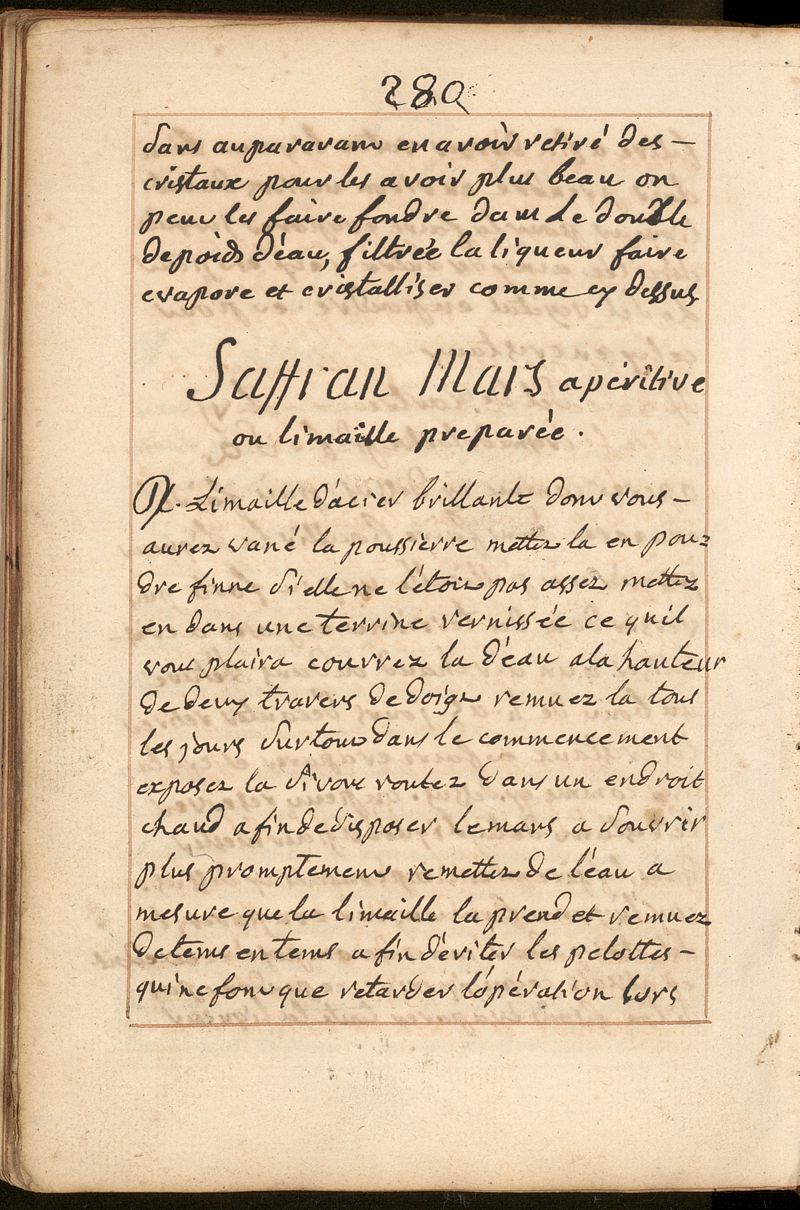 280
dans auparavant en avoir retiré des —
cristaux pour les avoir plus beau on
peut les faire fondre dans Le double
de poids d'éau, filtrée la liqueur faire
evapore et cristalliser comme cy dessus
Saffran Mars apéritive
ou limaille preparée.
℞. Limaille d'acier brillante dont vous —
aurez vané la poussierre mettez la en pou=
dre finne si elle ne l'étoit pas assez mettez
en dans une terrine vernissée ce quil
vous plaira couvrez la d'éau a la hauteur
de deux travers de doigt remuez la tous
les jours surtout dans le commencement
exposez la si vous voulez dans un endroit
chaud afin de disposer le mars a s'ouvrir
plus promptement remettez de l'éau a
mesure que la limaille la prend et remuez
de tems en tems afin d'éviter les pelottes —
qui ne font que retarder l'opération lors